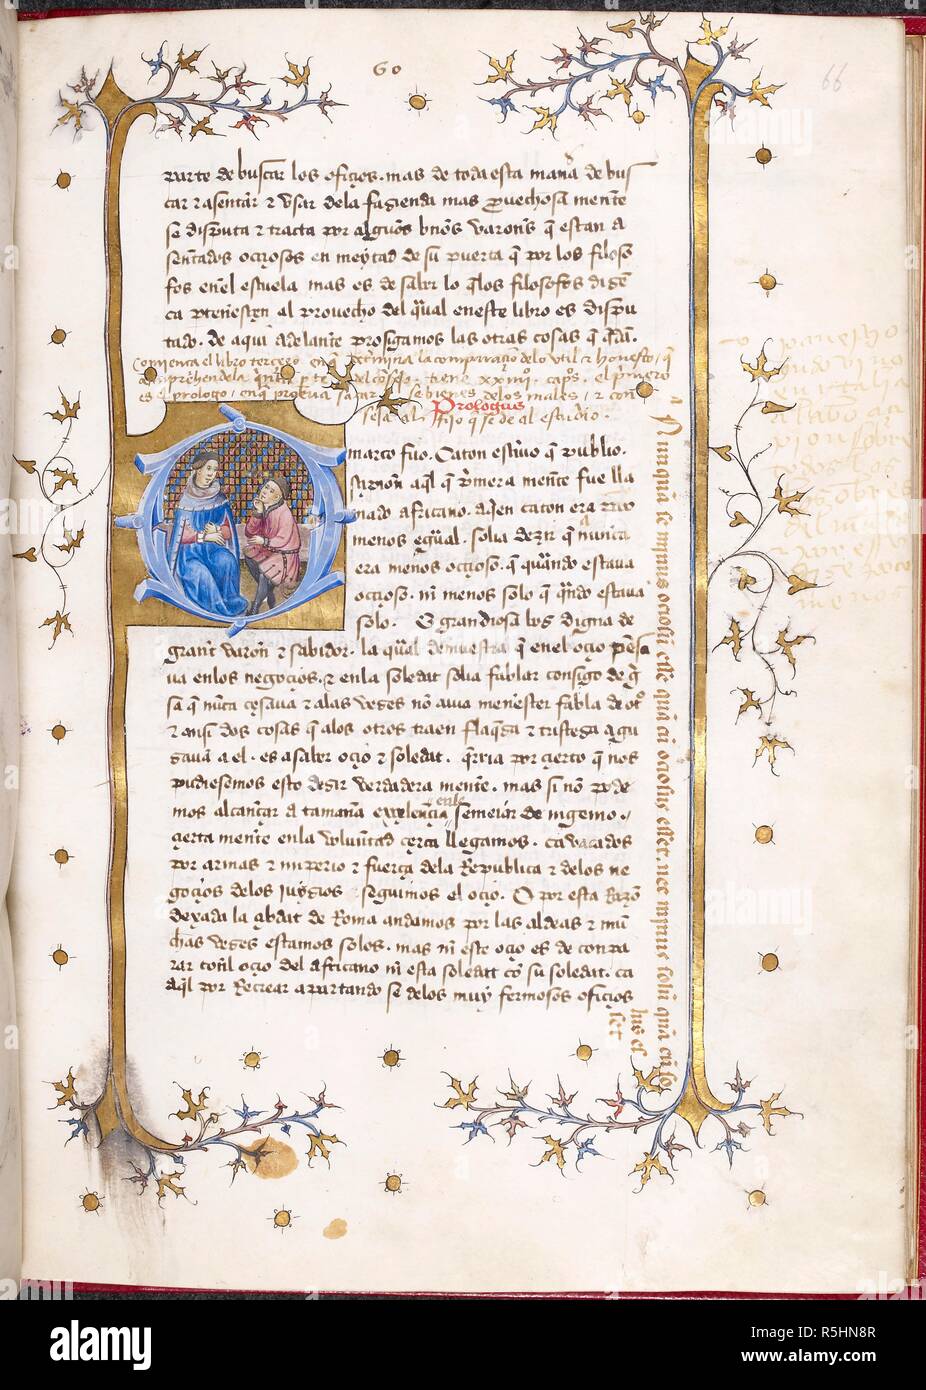 60
66
parte de buscar los ofiçios. mas de toda esta maña de bus
car & asentar & usar dela fazienda mas prouechosa mente
se disputa & tracta por algunos bnos varons q̃ estan a
sentados oçiosos en meytad de su puerta q̃ por los filoso
fos en el escuela mas es de saber lo q̃ los filosofos dizē
ca pteneşçen al prouecho del qual en este libro es dispu
tado. de aqui adelante prosigamos las otras cosas q̃
Comiença el libro terçero en q̃ determina la comparaçio delo util & honesto, q̃
comprehende la del tiene xxiiijo capos. el primero
es el prologo, en q̃ prueua sacar se bienes delos males, & con
Prologus
seia al fijo q̃ se de al estudio.
marco fijo. Caton escriuio q̃ publio.
sçipion aq̃l q̃ p̃mera mente fue lla
mado africano. aq̃en caton era
menos egual. solia dezir q̃ nunca
era menos oçioso. q̃ quando estaua
oçioso. ni menos solo q̃ qñdo estaua
solo. E grandiosa bos digna de
grant varon & sabidor. la qual demuestra q̃ en el oçio pensa
ua en los negoçios. & en la soledat solia fablar consigo de g̃
sa q̃ nunca çesaua & alas vezes no auia menester fabla de otº
& ansi dos cosas q̃ alos otros traen flaq̃za & tristeza agu
zauā a el. es a saber oçio & soledat. querria por çierto q̃ nos
pudiesemos esto dezir verdadera mente. mas si nō pode
mos alcançar a tamaña exçelençia semeiar de ingenio.
en la
çierta mente en la voluntad çerca llegamos. ca vacados
por armas & imperio & fuerça dela Republica & delos ne
goçios delos juyzios seguimos el oçio. O por esta Razon
dexada la çibdat de Roma andamos por las aldeas & mu
chas vezes estamos solos. mas ni este oçio es de conpa
rar con el oçio del africano ni esta soledat cō su soledat. ca
aq̃l por Recrear apartando se delos muy fermosos ofiçios
Nunquã se minus ociosũ esse quã cũ ociosus esset. nec minus solũ quã cũ so
lus es
set
alamy
Image ID: R5HN8R
www.alamy.com